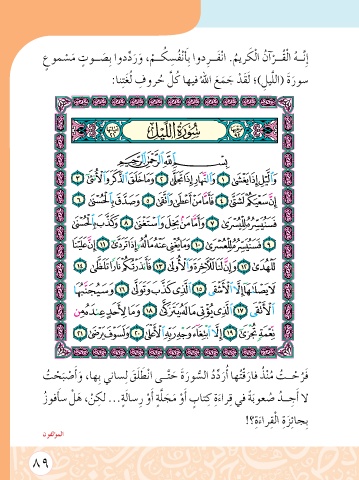 إِنَّـهُ الْقُـرْآنُ الْكَرِيمُ. انْفَـرِدوا بِأَنْفُسِـكُـمْ، وَرَدِّدوا بِصَـوتٍ مَسْموعٍ
سورَةَ (اللَّيلِ)؛ لَقَدْ جَمَعَ اللهُ فيها كُلَّ حُروفِ لُغَتِنا:
سُورَةُ اللَّيْلِ
بِسْمِ اللَّهِ الرَّحْمَٰنِ الرَّحِيمِ
وَاللَّيْلِ إِذَا يَغْشَىٰ ١ وَالنَّهَارِ إِذَا تَجَلَّىٰ ٢ وَمَا خَلَقَ الذَّكَرَ وَالْأُنثَىٰ ٣
إِنَّ سَعْيَكُمْ لَشَتَّىٰ ٤ فَأَمَّا مَنْ أَعْطَىٰ وَاتَّقَىٰ ٥ وَصَدَّقَ بِالْحُسْنَىٰ ٦
فَسَنُيَسِّرُهُ لِلْيُسْرَىٰ ٧ وَأَمَّا مَنۢ بَخِلَ وَاسْتَغْنَىٰ ٨ وَكَذَّبَ بِالْحُسْنَىٰ
٩ فَسَنُيَسِّرُهُ لِلْعُسْرَىٰ ١٠ وَمَا يُغْنِي عَنْهُ مَالُهُ إِذَا تَرَدَّىٰ ١١ إِنَّ عَلَيْنَا
لَلْهُدَىٰ ١٢ وَإِنَّ لَنَا لَلْآخِرَةَ وَالْأُولَىٰ ١٣ فَأَنذَرْتُكُمْ نَارًا تَلَظَّىٰ ١٤
لَا يَصْلَاهَا إِلَّا الْأَشْقَى ١٥ الَّذِي كَذَّبَ وَتَوَلَّىٰ ١٦ وَسَيُجَنَّبُهَا
الْأَتْقَى ١٧ الَّذِي يُؤْتِي مَالَهُ يَتَزَكَّىٰ ١٨ وَمَا لِأَحَدٍ عِندَهُ مِن
نِّعْمَةٍ تُجْزَىٰ ١٩ إِلَّا ابْتِغَاءَ وَجْهِ رَبِّهِ الْأَعْلَىٰ ٢٠ وَلَسَوْفَ يَرْضَىٰ ٢١
فَرِحْـتُ مُنْذُ فارَقْتُها أُرَدِّدُ السّورَةَ حَتَّـى انْطَلَقَ لِساني بِها، وَأَصْبَحْتُ
لا أَجِـدُ صُعوبَةً في قِراءَةِ كِتابٍ أَوْ مَجَلَّةٍ أَوْ رِسالَةٍ... لكِنْ، هَلْ سَأَفوزُ
بِجائِزَةِ الْقِراءَةِ؟!
المؤلفون
٨٩